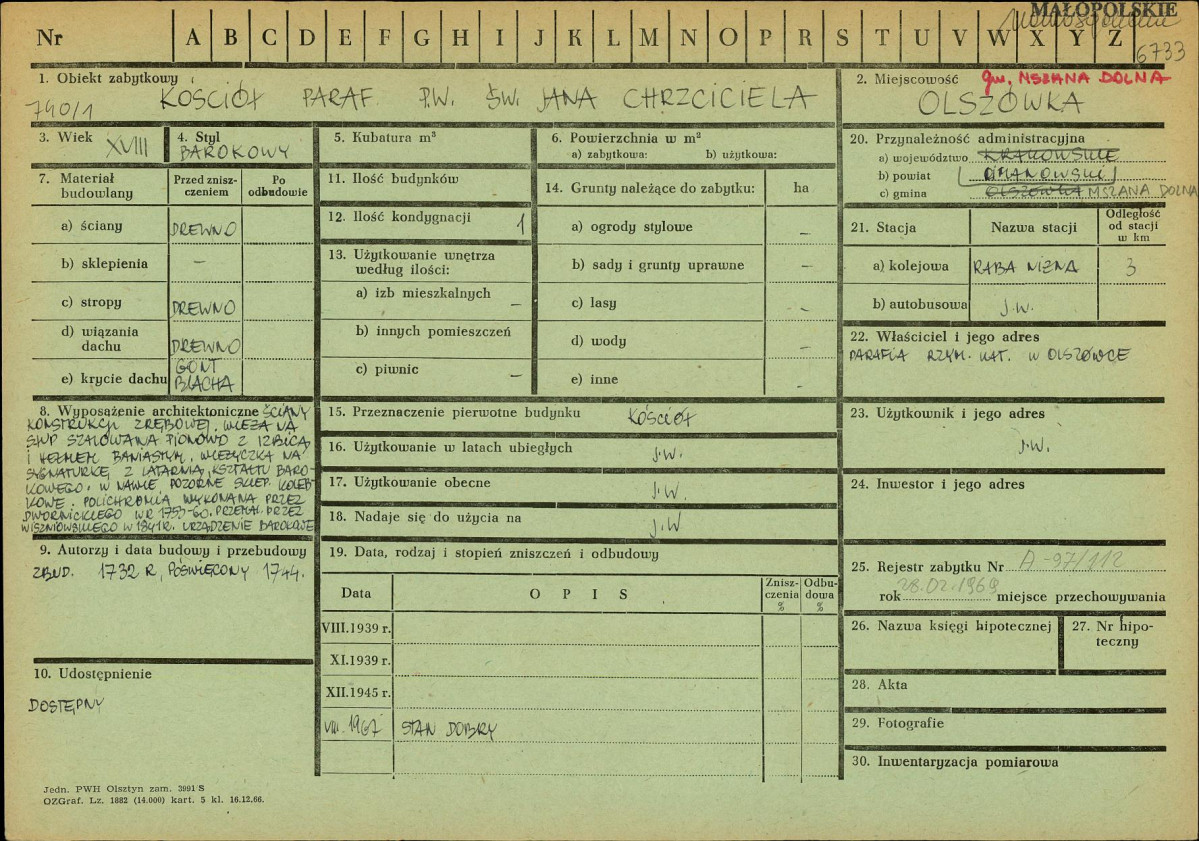 MAŁOPOLSKIE
Nr A B C D E F G H I J K L M N O P R S T U V W X Y Z
6733
1. Obiekt zabytkowy
740/1 KOŚCIÓŁ PARAF. P.W. ŚW. JANA CHRZCICIELA
2. Miejscowość gm. MSZANA DOLNA
OLSZÓWKA
3. Wiek XVIII
4. Styl
BAROKOWY
5. Kubatura m³
6. Powierzchnia w m²
a) zabytkowa: b) użytkowa:
7. Materiał budowlany
Przed znisz-
czeniem
Po
odbudowie
a) ściany DREWNO
b) sklepienia –
c) stropy DREWNO
d) wiązania
dachu DREWNO
e) krycie dachu GONT
BLACHA
11. Ilość budynków
12. Ilość kondygnacji 1
13. Użytkowanie wnętrza
według ilości:
a) izb mieszkalnych –
b) innych pomieszczeń
c) piwnic –
14. Grunty należące do zabytku: ha
a) ogrody stylowe –
b) sady i grunty uprawne –
c) lasy –
d) wody –
e) inne –
20. Przynależność administracyjna
a) województwo KRAKOWSKIE
b) powiat LIMANOWSKI
c) gmina OLSZÓWKA MSZANA DOLNA
21. Stacja Nazwa stacji
Odległość
od stacji
w km
a) kolejowa RABA NIŻNA 3
b) autobusowa J.W.
22. Właściciel i jego adres
PARAFIA RZYM. KAT. W OLSZÓWCE
8. Wyposażenie architektoniczne ŚCIANY
KONSTRUKCJI ZRĘBOWEJ. WIEŻA NA
SŁUP SZALOWANA PIONOWO Z IZBICĄ
I HEŁMEM BANIASTYM. WIEŻYCZKA NA
SYGNATURKĘ Z LATARNIĄ, KSZTAŁTU BARO-
KOWEGO. W NAWIE POZORNE SKLEP. KOLEB-
KOWE. POLICHROMIA WYKONANA PRZEZ
DWORNICKIEGO W R 1755-60. PRZEMAL. PRZEZ
WISZNIOWSKIEGO W 1841 R. URZĄDZENIE BAROKOWE
15. Przeznaczenie pierwotne budynku KOŚCIÓŁ
16. Użytkowanie w latach ubiegłych J.W.
17. Użytkowanie obecne J.W.
18. Nadaje się do użycia na J.W
23. Użytkownik i jego adres
J.W.
24. Inwestor i jego adres
9. Autorzy i data budowy i przebudowy
ZBUD. 1732 R, POŚWIĘCONY 1744.
19. Data, rodzaj i stopień zniszczeń i odbudowy
Data O P I S
Znisz-
czenia
%
Odbu-
dowa
%
VIII.1939 r.
XI.1939 r.
XII.1945 r.
VIII. 1967 STAN DOBRY
10. Udostępnienie
DOSTĘPNY
25. Rejestr zabytku Nr A-97/112
rok 28.02.1969 miejsce przechowywania
26. Nazwa księgi hipotecznej
27. Nr hipo-
teczny
28. Akta
29. Fotografie
30. Inwentaryzacja pomiarowa
Jedn. PWH Olsztyn zam. 3991 S
OZGraf. Lz. 1882 (14.000) kart. 5 kl. 16.12.66.